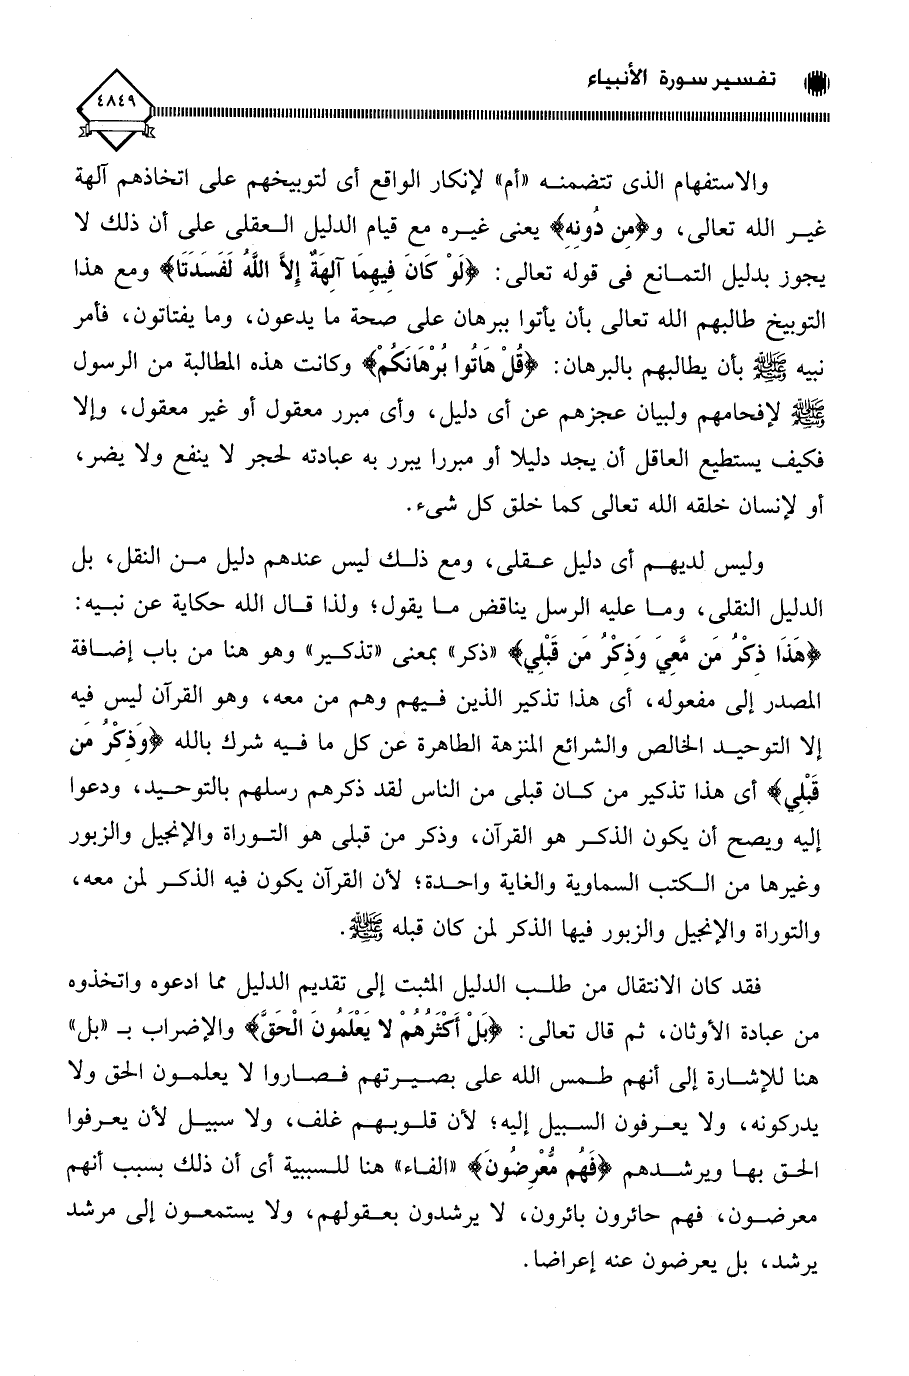 تفسير سورة الأنبياء
٤٨٤٩
والاستفهام الذى تتضمنه «أم» لإنكار الواقع أى لتوبيخهم على اتخاذهم آلهة
غير الله تعالى، و﴿مِن دُونِهِ﴾ يعنى غيره مع قيام الدليل العقلى على أن ذلك لا
يجوز بدليل التمانع فى قوله تعالى: ﴿لَوْ كَانَ فِيهِمَا آلِهَةٌ إِلاَّ اللَّهُ لَفَسَدَتَا﴾ ومع هذا
التوبيخ طالبهم الله تعالى بأن يأتوا ببرهان على صحة ما يدعون، وما يفتاتون، فأمر
نبيه ﷺ بأن يطالبهم بالبرهان: ﴿قُلْ هَاتُوا بُرْهَانَكُمْ﴾ وكانت هذه المطالبة من الرسول
ﷺ لإفحامهم ولبيان عجزهم عن أى دليل، وأى مبرر معقول أو غير معقول، وإلا
فكيف يستطيع العاقل أن يجد دليلا أو مبررا يبرر به عبادته لحجر لا ينفع ولا يضر،
أو لإنسان خلقه الله تعالى كما خلق كل شىء.
وليس لديهم أى دليل عقلى، ومع ذلك ليس عندهم دليل من النقل، بل
الدليل النقلى، وما عليه الرسل يناقض ما يقول؛ ولذا قال الله حكاية عن نبيه:
﴿هَذَا ذِكْرُ مَن مَّعِيَ وَذِكْرُ مَن قَبْلِي﴾ «ذكر» بمعنى «تذكير» وهو هنا من باب إضافة
المصدر إلى مفعوله، أى هذا تذكير الذين فيهم وهم من معه، وهو القرآن ليس فيه
إلا التوحيد الخالص والشرائع المنزهة الطاهرة عن كل ما فيه شرك بالله ﴿وَذِكْرُ مَن
قَبْلِي﴾ أى هذا تذكير من كان قبلى من الناس لقد ذكرهم رسلهم بالتوحيد، ودعوا
إليه ويصح أن يكون الذكر هو القرآن، وذكر من قبلى هو التوراة والإنجيل والزبور
وغيرها من الكتب السماوية والغاية واحدة؛ لأن القرآن يكون فيه الذكر لمن معه،
والتوراة والإنجيل والزبور فيها الذكر لمن كان قبله ﷺ.
فقد كان الانتقال من طلب الدليل المثبت إلى تقديم الدليل مما ادعوه واتخذوه
من عبادة الأوثان، ثم قال تعالى: ﴿بَلْ أَكْثَرُهُمْ لا يَعْلَمُونَ الْحَقَّ﴾ والإضراب بـ «بل»
هنا للإشارة إلى أنهم طمس الله على بصيرتهم فصاروا لا يعلمون الحق ولا
يدركونه، ولا يعرفون السبيل إليه؛ لأن قلوبهم غلف، ولا سبيل لأن يعرفوا
الحق بها ويرشدهم ﴿فَهُم مُّعْرِضُونَ﴾ «الفاء» هنا للسببية أى أن ذلك بسبب أنهم
معرضون، فهم حائرون بائرون، لا يرشدون بعقولهم، ولا يستمعون إلى مرشد
يرشد، بل يعرضون عنه إعراضا.